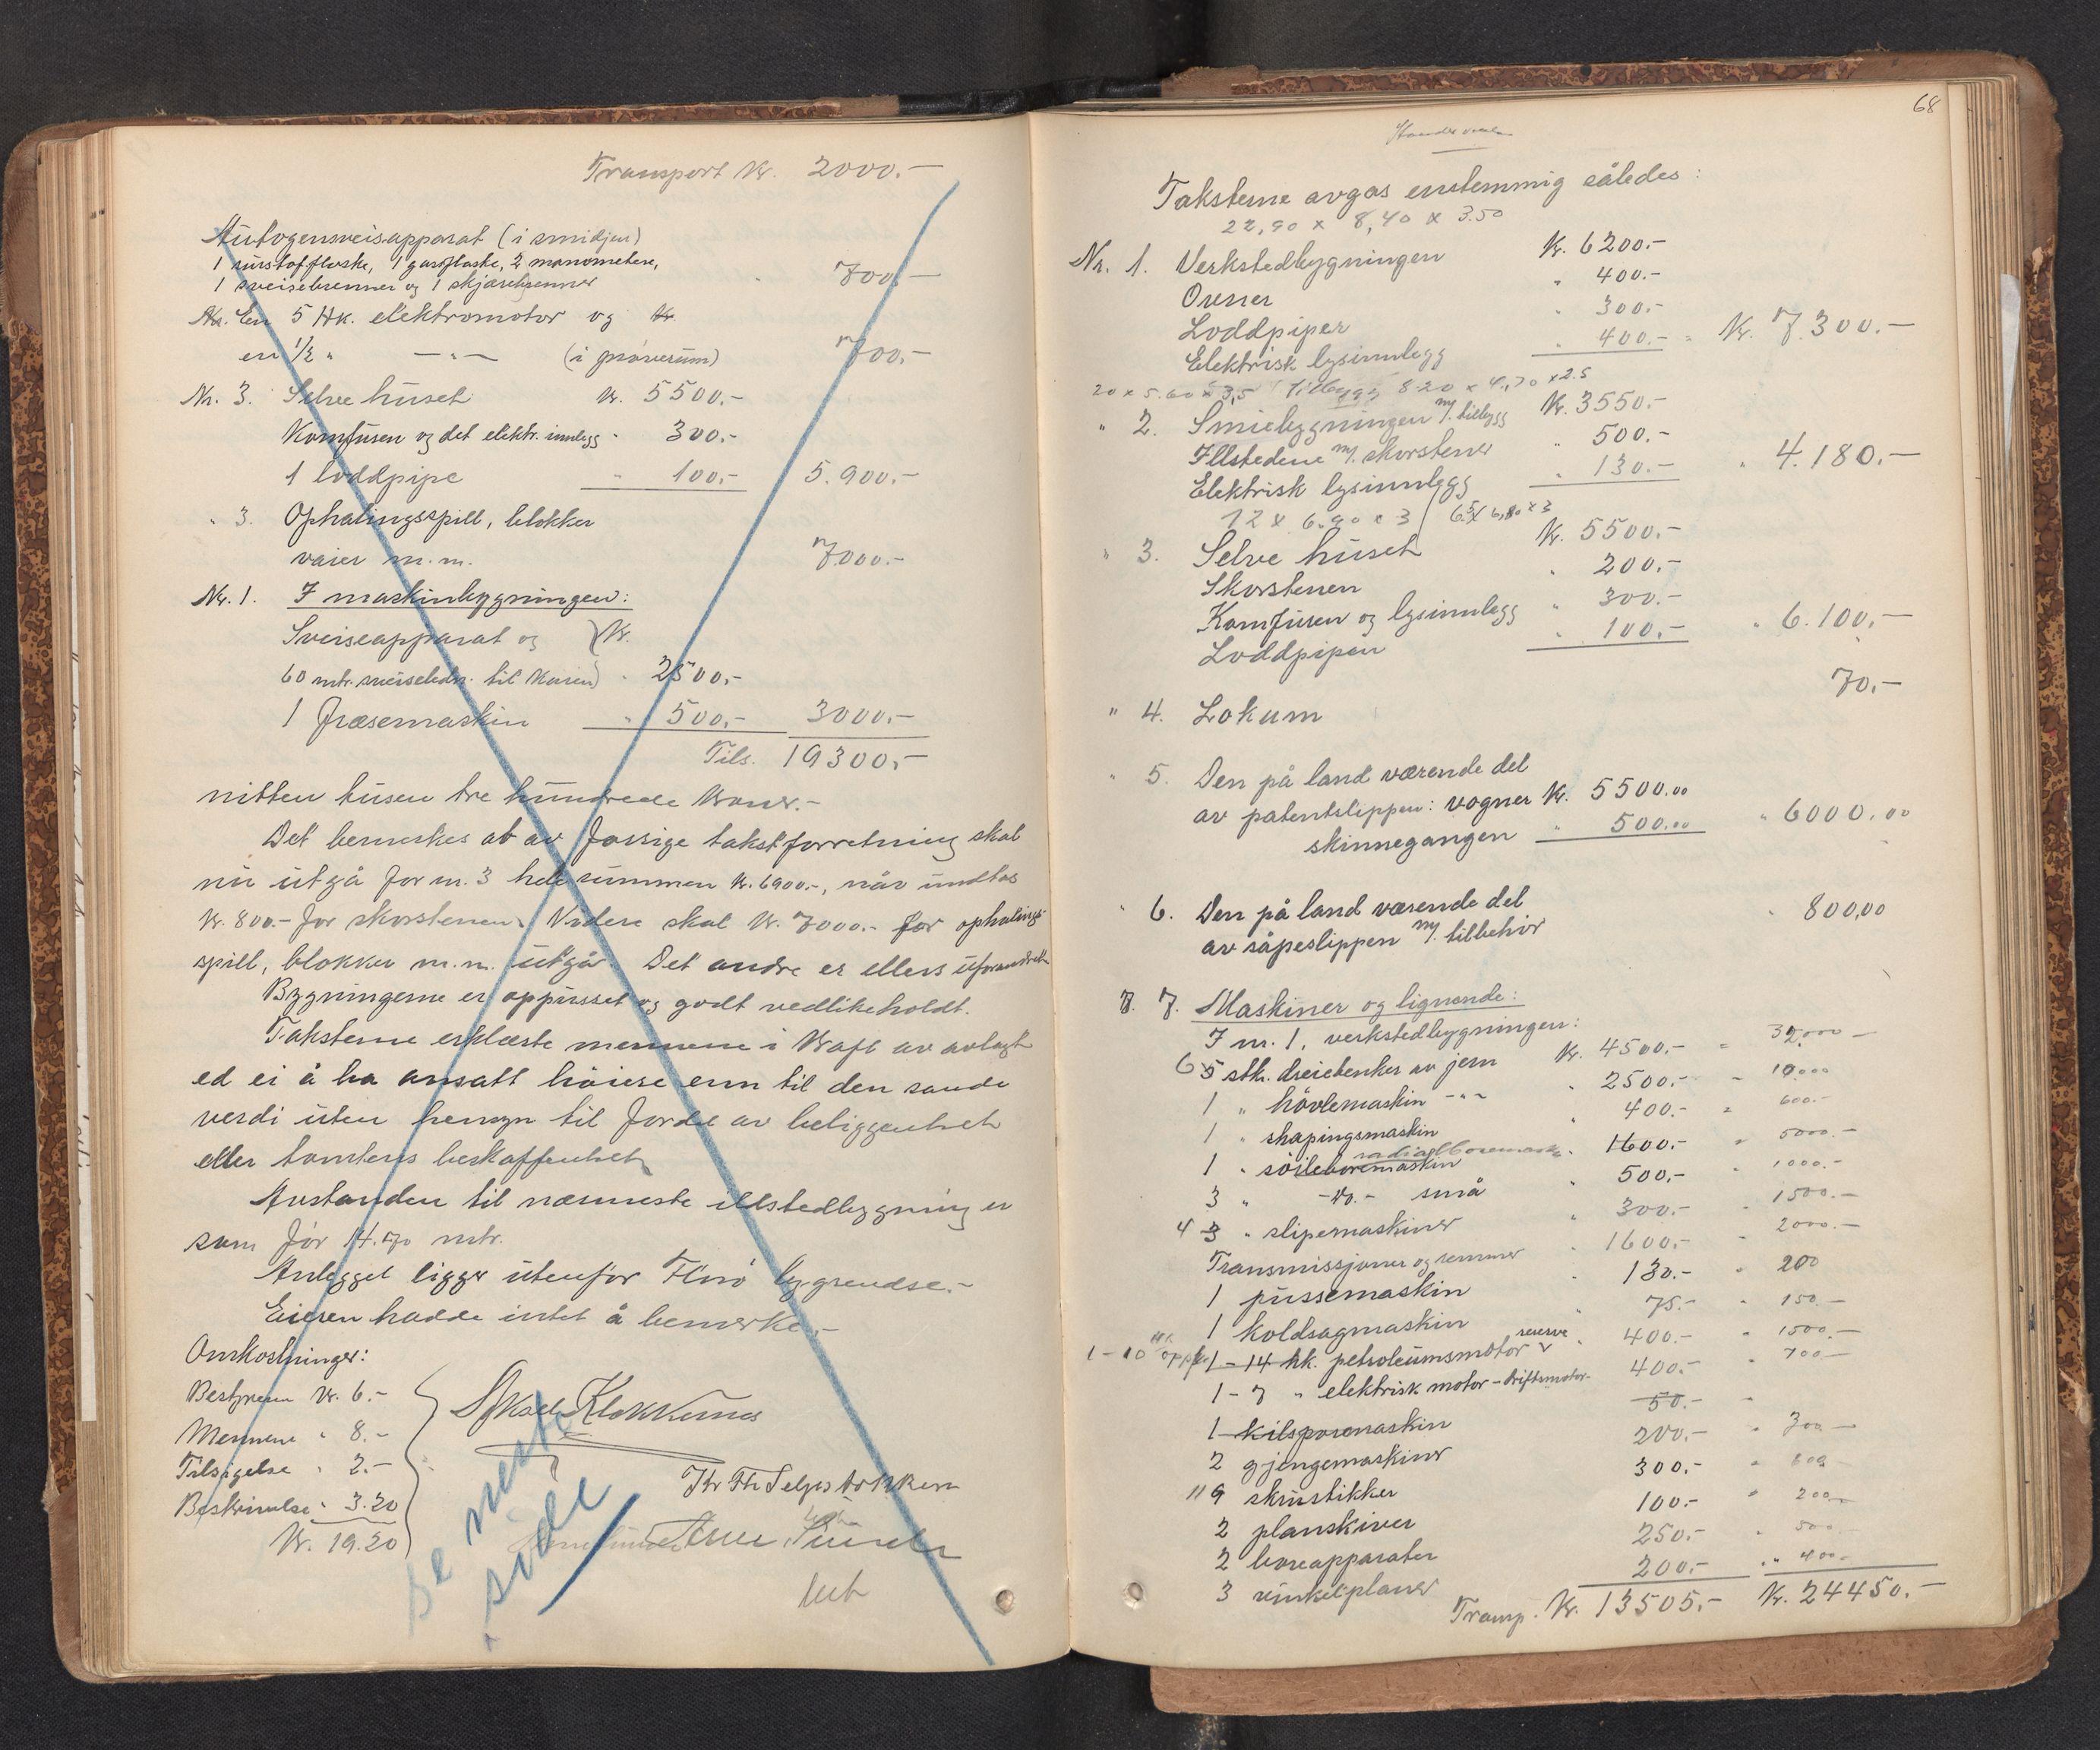 Transport Kr. 2000.-
Autogensveisapparat (i smidjen)
1 surstofflaske, 1 gassflaske, 2 manometere,
1 sveisebrenner og 1 skjærebrenner 700.-
Nr. En 5 Hk. elektromotor og Kr.
en 1/2 " -"- (i prøverum) 700.-
Nr. 3. Selve huset Kr. 5500.-
Komfuren og det elektr. innlegg " 300.-
1 loddpipe " 100.- 5.900.-
" 3. Ophalingsspill, blokker
vaier m.m. 7000.-
Nr. 1. I maskinbygningen:
Sveiseapparat og } Kr.
60 mtr. sveiseledn. til kaien) " 2500.-
1 fræsemaskin " 500.- 3000.-
Tils. 19300.-
nitten tusen tre hundrede kroner.-
Det bemerkes at av forrige takstforretning skal
nu utgå for nr. 3 hele summen kr. 6900.-, når undtas
kr. 800.- for skorstenen. Videre skal kr. 7000.- for ophalings-
spill, blokker m.m. utgår. Det andre er ellers uforandret
Bygningerne er oppusset og godt vedlikeholdt.
Taksterne erklærte mennene i kraft av avlagt
ed ei å ha ansatt høiere enn til den sande
verdi uten hensyn til fordel av beliggenhet
eller tomtens beskaffenhet
Avstanden til nærmeste illstedbygning er
som før 14.70 mtr.
Anlegget ligger utenfor Florø bygrendse.-
Eieren hadde intet å bemerke.-
Omkostninger:
Bestyreren Kr. 6.-
Mennene " 8.-
Tilsigelse " 2.-
Beskrivelse " 3.20
Kr. 19.20
Aksel Klokkernes
Se neste
side
68
Taksterne avgas enstemmig således:
22,90 x 8,40 x 3.50
Nr. 1. Verkstedbygningen Kr. 6200.-
Ovner " 400.-
Loddpiper " 300.-
Elektrisk lysinnlegg " 400.- " Kr. 7.300.-
20 x 5.60 x 3,5 Tilbygg 8.20 x 4,70 x 2.5
" 2. Smiebygningen m/. tilbygg Kr. 3550.-
Illstedene m/. skorstener " 500.-
Elektrisk lysinnlegg " 130.- " 4.180.-
12 x 6.90 x 3 / 6.5 x 6,80 x 3
" 3. Selve huset Kr. 5500.-
Skorstenen " 200.-
Komfuren og lysinnlegg " 300.-
Loddpipen " 100.- " 6.100.-
" 4. Lokum 70.-
" 5. Den på land værende del
av patentslippen: vogner Kr. 5500.00
skinnegangen " 500.00 " 6000.00
" 6. Den på land værende del
av såpeslippen m/. tilbehør " 800,00
7. 7. Maskiner og lignende:
I nr. 1, verkstedbygningen:
6 5 stk. dreiebenker av jern Kr. 4500.-
1 " høvlemaskin -"- " 2500.- " 10.000
1 " shapingsmaskin " 400.- " 600.-
1 " søileboremaskin radialboremaskin " 1600.- " 5000.-
3 " -do.- små " 500.- " 1000.-
4 3 " slipemaskiner " 300.- " 1500.-
Transmissjoner og remmer " 1600.- " 2000.-
1 pussemaskin " 130.- " 200
1 koldsagmaskin " 75.- " 150.-
1-10 1-14 hk. petroleumsmotor reserve " 400.- " 1500.-
1-7 " elektrisk motor - driftsmotor. 400.- " 700.-
1 kilspormaskin 50.- "
2 gjengemaskiner 200.- " 300.-
11 9 skrustikker 300.- " 600
2 planskiver 100.- " 200.-
2 boreapparater 250.- " 500.-
3 vinkelplaner 200.- " 400.-
Transp. Kr. 13505.- Kr. 24450.-